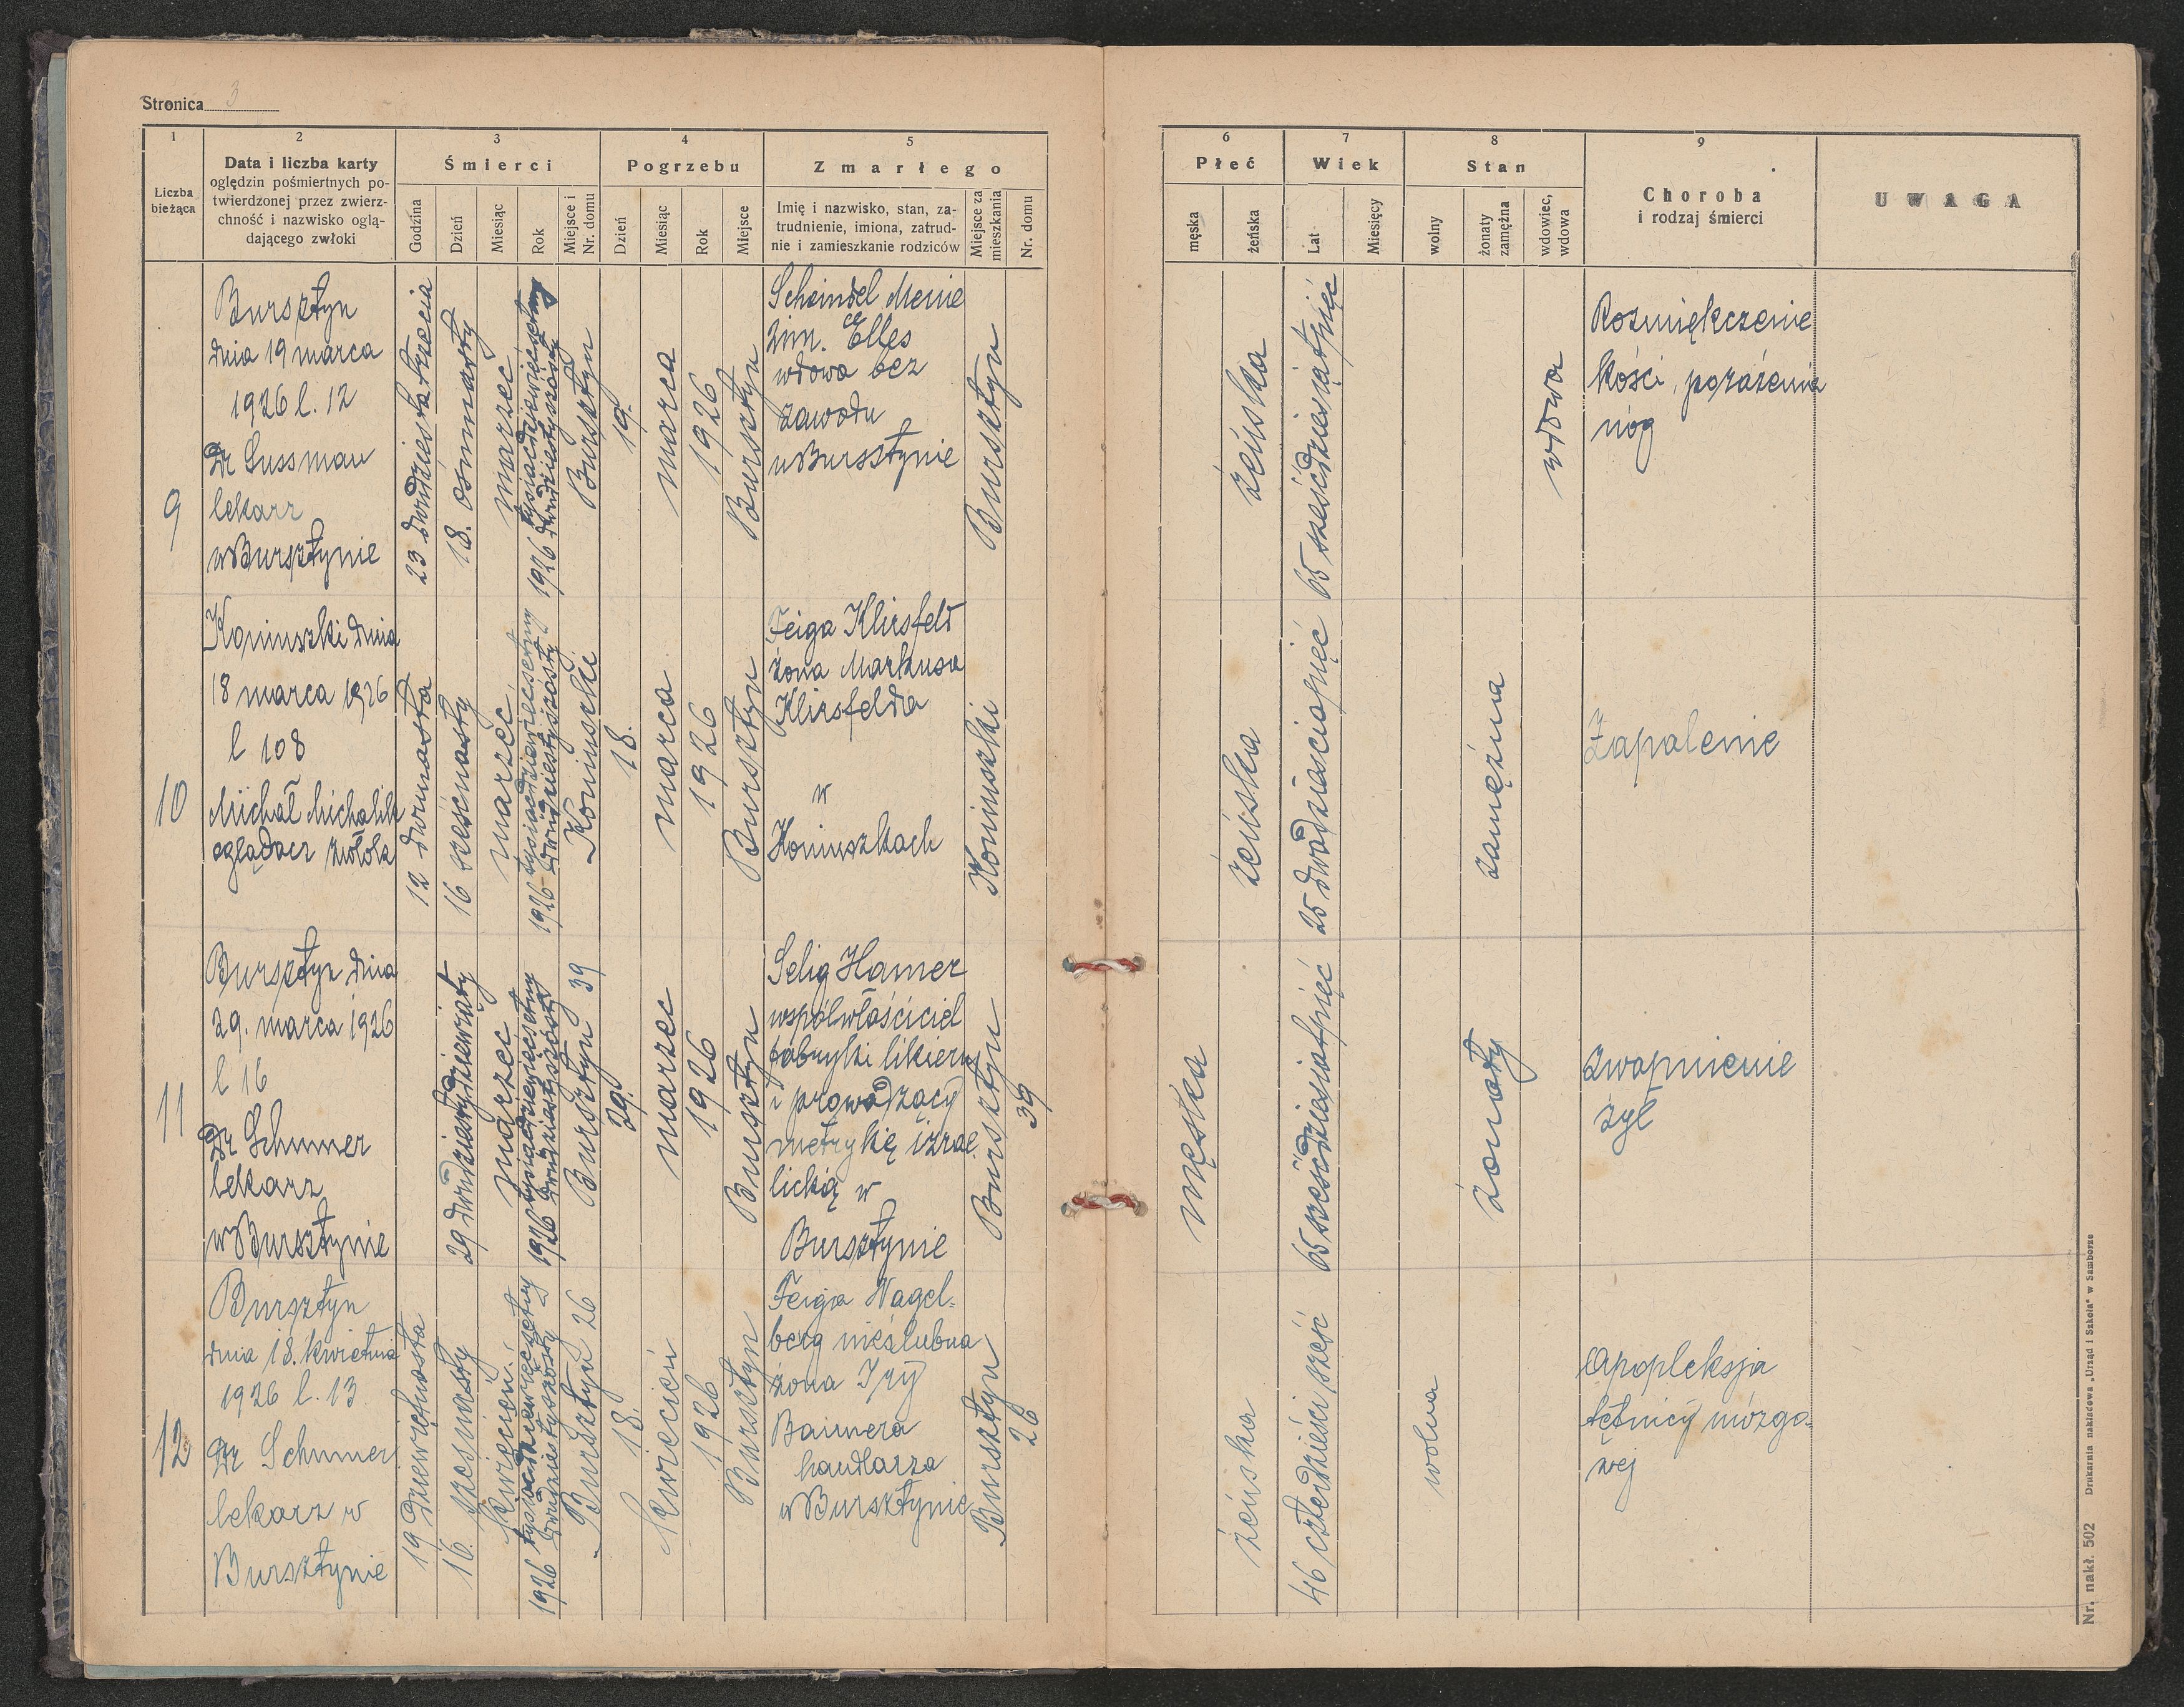 Stronica 3
1
2
3
4
5
Liczba
bieżąca
Data i liczba karty
oględzin pośmiertnych po-
twierdzonej przez zwierz-
chność i nazwisko oglą-
dającego zwłoki
Śmierci
Godzina
Dzień
Miesiąc
Rok
Miejsce i
Nr. domu
Pogrzebu
Dzień
Miesiąc
Rok
Miejsce
Zmarłego
Imię i nazwisko, stan, za-
trudnienie, imiona, zatrud-
nie i zamieszkanie rodziców
Miejsce za
mieszkania
Nr. domu
6
7
8
9
Płeć
męska
żeńska
Wiek
Lat
Miesięcy
Stan
wolny
żonaty
zamężna
wdowiec,
wdowa
Choroba
i rodzaj śmierci
UWAGA
9
Bursztyn
dnia 19 marca
1926 l. 12
Dr Sussman
lekarz
w Bursztynie
23 dwudziesta trzecia
18. ósmnasty
marzec
1926 tysiącdziewięćsetny
dwudziestyszósty
Bursztyn
19.
marca
1926
Bursztyn
Scheindel Menie
2im. Elles
wdowa bez
zawodu
w Bursztynie
Bursztyn
żeńska
65 sześćdziesiątpięć
wdowa
Rozmiękczenie
kości, porażenie
nóg
10
Koniuszki dnia
18 marca 1926
l 108
Michał Michalik
oglądacz zwłok
12 dwunasta
16 szesnasty
marzec
1926 tysiącdziewięćsetny
dwudziestyszósty
Koniuszki
18.
marca
1926
Bursztyn
Feiga Klirsfeld
żona Markusa
Klirsfelda
w
Koniuszkach
Koniuszki
żeńska
25 dwadzieściapięć
zamężna
Zapalenie
11
Bursztyn dnia
29. marca 1926
l 16
Dr Schumer
lekarz
w Bursztynie
29 dwudziestydziewiąty
marzec
1926 tysiącdziewięćsetny
dwudziestyszósty
Bursztyn 39
29.
marzec
1926
Bursztyn
Selig Hamer
współwłaściciel
fabryki likieru
i prowadzący
metrykę izrae-
licką w
Bursztynie
Bursztyn
39
męska
65 sześćdziesiątpięć
żonaty
zwapnienie
żył
12
Bursztyn
dnia 18. kwietnia
1926 l. 13
Dr Schumer
lekarz w
Bursztynie
19 dziewiętnasta
16. szesnasty
kwiecień
1926 tysiącdziewięćsetny
dwudziestyszósty
Bursztyn 26
18.
kwiecień
1926
Bursztyn
Feiga Nagel-
berg nieślubna
żona Izy
Baumera
handlarza
w Bursztynie
Bursztyn
26
żeńska
46 czterdzieści sześć
wolna
Apopleksja
tętnicy mózgo-
wej
Nr. nakł. 502 Drukarnia nakładowa „Urząd i Szkoła" w Samborze